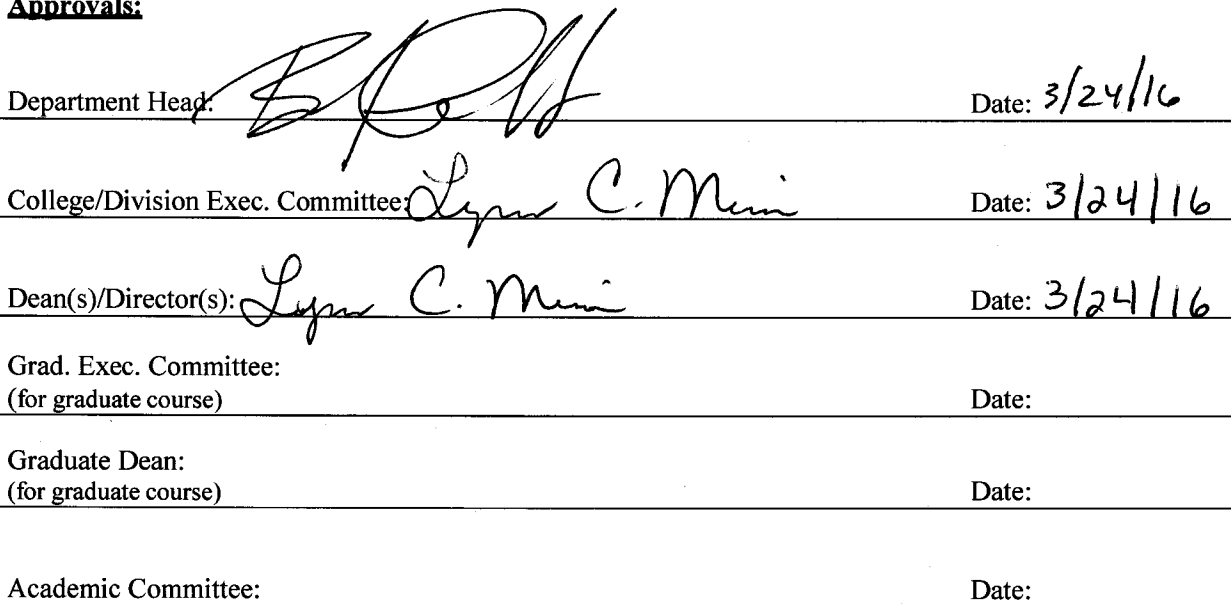 Approvals:
Department Head: Date: 3/24/16
College/Division Exec. Committee: Lynn C. Date: 3/24/16
Dean(s)/Director(s): Lynn C. Date: 3/24/16
Grad. Exec. Committee:
(for graduate course) Date:
Graduate Dean:
(for graduate course) Date:
Academic Committee: Date: